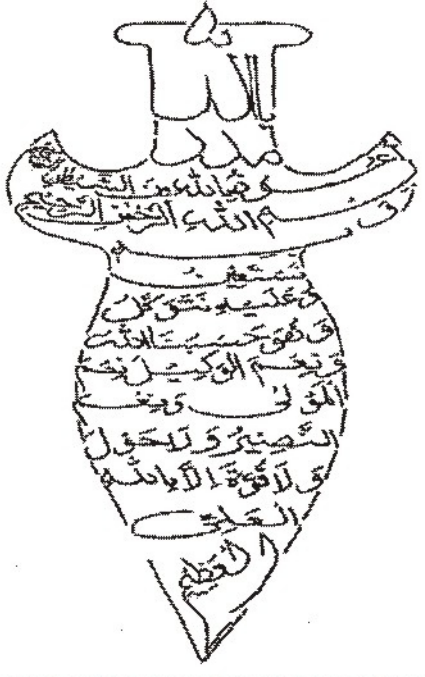 مدد
اعوذ بالله من الشيطن
بسم الله الرحمن الرحيم
نستعين
وعليه نتوكل
وهو حسبنا الله
ونعم الوكيل نعم
المولى ونعم
النصير ولا حول
ولا قوة الا بالله
العلي
العظيم